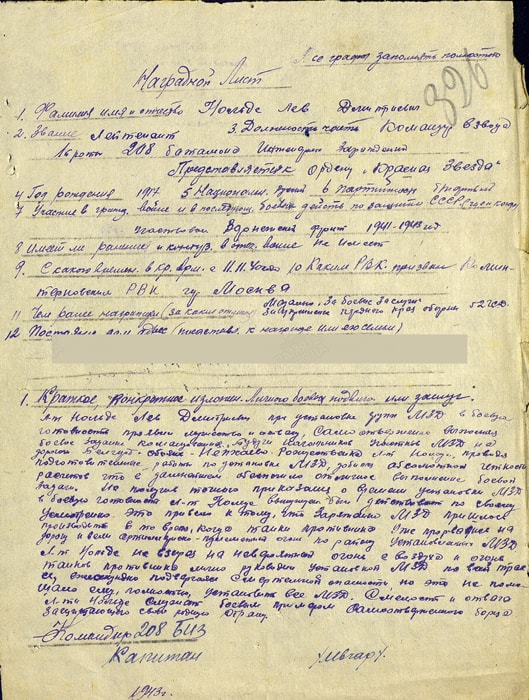 Все графы заполнять полностью
326
Наградной Лист
1. Фамилия имя и отчество Нольде Лев Дмитриевич
2. Звание Лейтенант 3. Должность часть Командир взвода
роты 208 батальона Инженерн. Заграждений
Представляется к Ордену "Красная Звезда"
4 Год рождения 1917 5 Национальн. 6 Партийность
7 Участие в гражд. войне и в последующ. боевых действ по защите СССР
Участвовал Воронежский фронт 1941-1943 год
8 Имеет ли ранение и контуз. в отеч. войне Не имеет
9. С какого времени в кр. арм. с 10 Каким Р.В.К. призван Комин-
терновским РВК гор Москва
11 Чем ранее награжден (за какие отличия) Медалью "За боевые заслуги"
12 Постоян
1. Краткое, конкретное изложен. личного боевого подвига или заслуг.
Л-т Нольде Лев Дмитриевич при установке групп МЗД в боевую
готовность проявил мужество и отвагу, Самоотверженно выполняя
боевое задание командования. Будучи участков МЗД на
дороге Белгород - Обоянь - Л-т Нольде, проведя
подготовительные работы по установке МЗД, добился абсолютной четкости
расчетов что в дальнейшем обеспечило отличное выполнение боевой
задачи. Не получив точного приказания о времени установки МЗД
в боевую готовность Л-т Нольде вынужден был действовать по своему
усмотрению. Это привело к тому, что заряжать МЗД пришлось
производить в то время, когда танки противника уже прорвались на
дорогу и вели артиллерийско-пулеметный огонь по району установки МЗД
Л-т Нольде не взирая на огонь с воздуха и огонь
танков противника лично руководил установкой МЗД по всей трас-
се, ежесекундно подвергаясь Смертельной опасности но это не поме-
шало ему, полностью, установить все МЗД. Смелость и отвага
Л-та Нольде служат боевым примером Самоотверженного борца
Защищающего свою родную страну.
Командир 208 БИЗ
Капитан
1943 г.